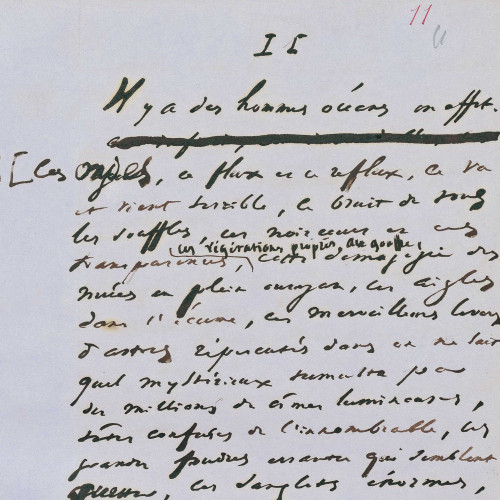 11
II
Il y a des hommes océans en effet.
Ces ondes, ce flux et ce reflux, ce va
et vient terrible, ce bruit de tous
les souffles, ces noirceurs et ces
ces végétations propres au gouffre,
transparences, cette démagogie des
nuées en plein ouragan, ces aigles
dans l'écume, ces merveilleux levers
d'astres répercutés dans on ne sait
quel mystérieux tumulte par
des millions de cimes lumineuses,
têtes confuses de l'innombrable, ces
grandes foudres errantes qui semblent
guetter, ces sanglots énormes,